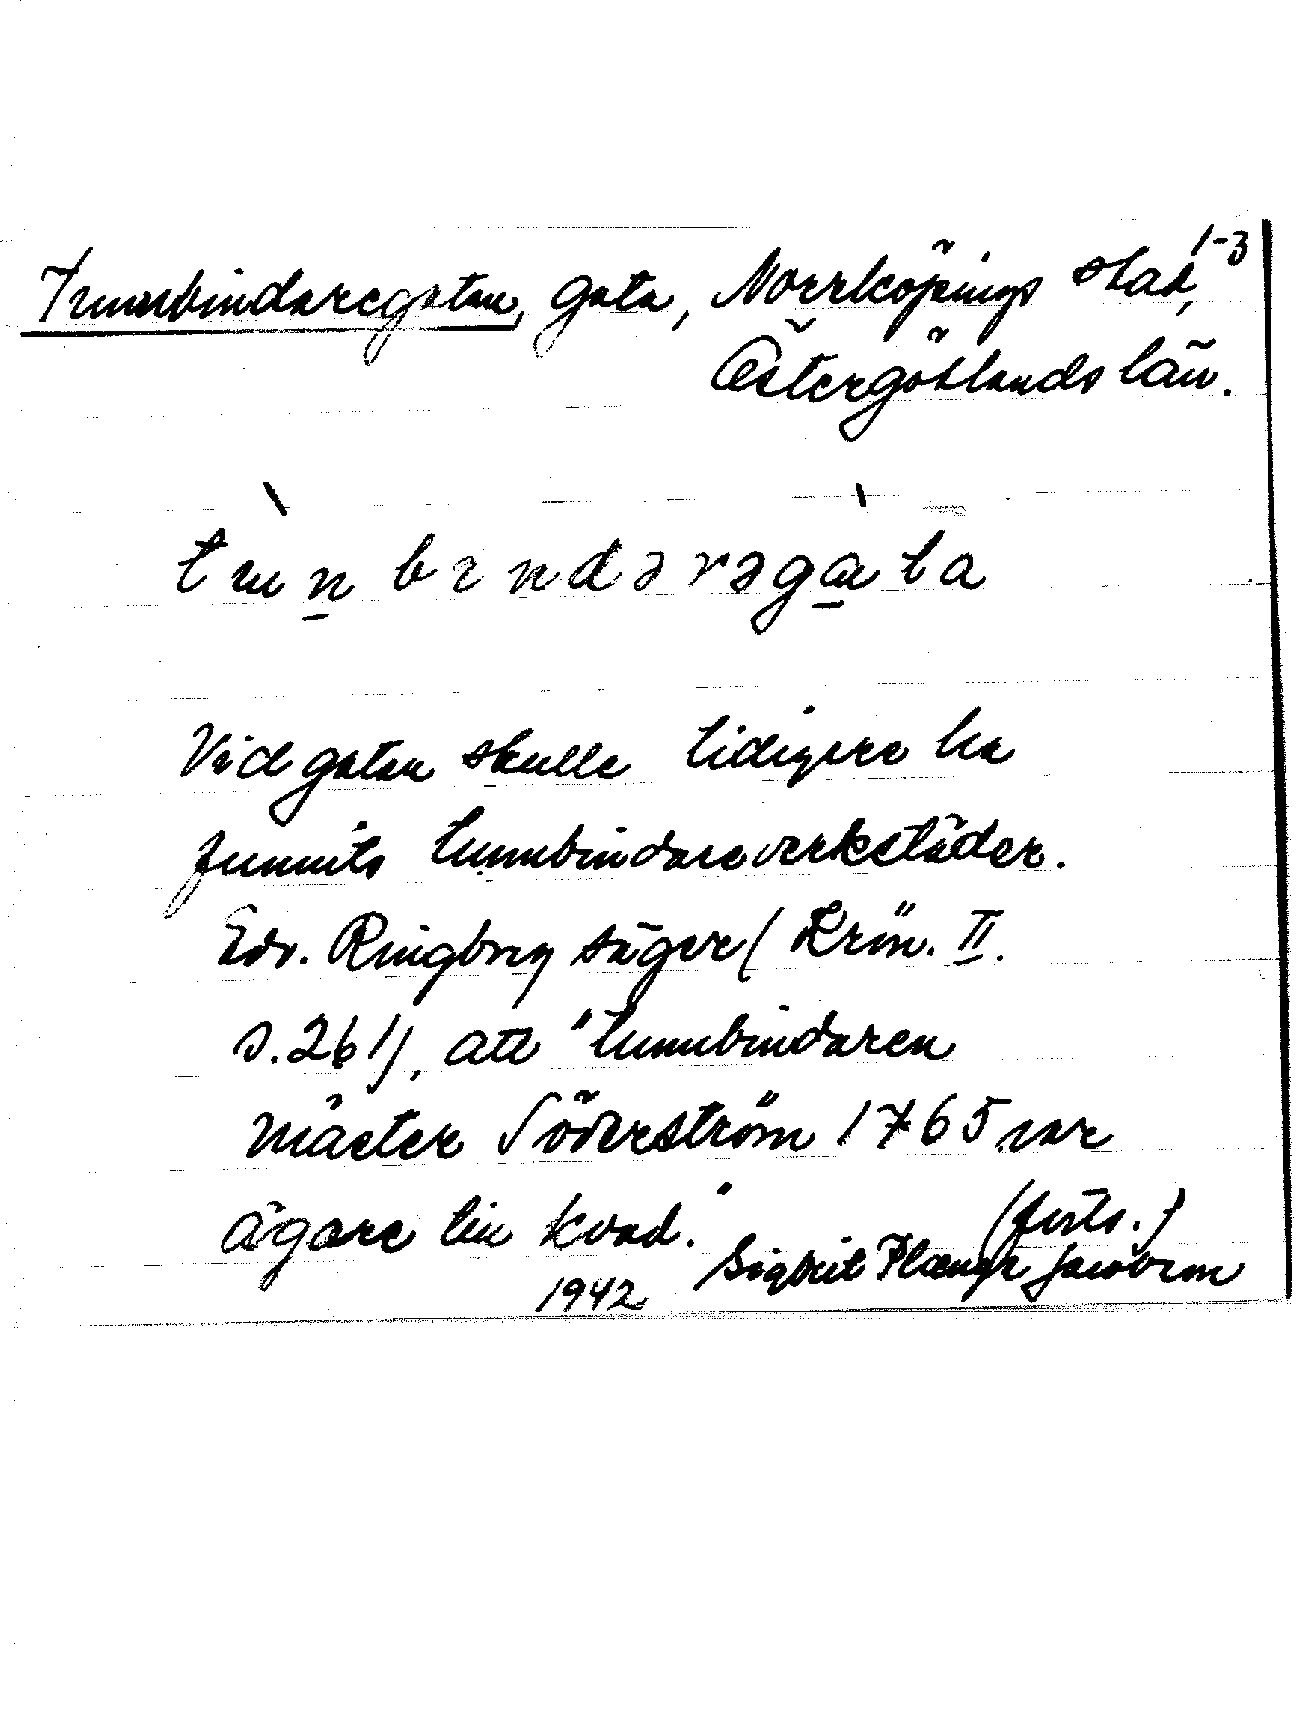 1-3
Tunnbindaregatan, gata, Norrköpings stad,
Östergötlands län.
tunbindərəgata
Vid gatan skulle tidigare ha
funnits tunnbindareverkstäder.
Edv. Ringborg säger (Krön. II.
s. 261), att "tunnbindaren
mäster Söderström 1765 var
ägare till kvad."
(forts.)
1942 Sigbrit Plænge Jacobson